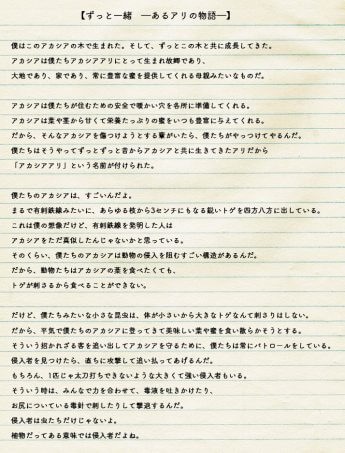 【ずっと一緒　―あるアリの物語―】
僕はこのアカシアの木で生まれた。そして、ずっとこの木と共に成長してきた。
アカシアは僕たちアカシアアリにとって生まれ故郷であり、
大地であり、家であり、常に豊富な蜜を提供してくれる母親みたいなものだ。
アカシアは僕たちが住むための安全で暖かい穴を各所に準備してくれる。
アカシアは葉や茎から甘くて栄養たっぷりの蜜をいつも豊富に与えてくれる。
だから、そんなアカシアを傷つけようとする輩がいたら、僕たちがやっつけてやるんだ。
僕たちはそうやってずっとずっと昔からアカシアと共に生きてきたアリだから
「アカシアアリ」という名前が付けられた。
僕たちのアカシアは、すごいんだよ。
まるで有刺鉄線みたいに、あらゆる枝から3センチにもなる鋭いトゲを四方八方に出している。
これは僕の想像だけど、有刺鉄線を発明した人は
アカシアをただ真似したんじゃないかと思っている。
そのくらい、僕たちのアカシアは動物の侵入を阻むすごい構造があるんだ。
だから、動物たちはアカシアの葉を食べたくても、
トゲが刺さるから食べることができない。
だけど、僕たちみたいな小さな昆虫は、体が小さいから大きなトゲなんて刺さりはしない。
だから、平気で僕たちのアカシアに登ってきて美味しい葉や蜜を食い散らかそうとする。
そういう招かれざる客を追い出してアカシアを守るために、僕たちは常にパトロールをしている。
侵入者を見つけたら、直ちに攻撃して追い払ってあげるんだ。
もちろん、1匹じゃ太刀打ちできないような大きくて強い侵入者もいる。
そういう時は、みんなで力を合わせて、毒液を吐きかけたり、
お尻についている毒針で刺したりして撃退するんだ。
侵入者は虫たちだけじゃないよ。
植物だってある意味では侵入者だよね。